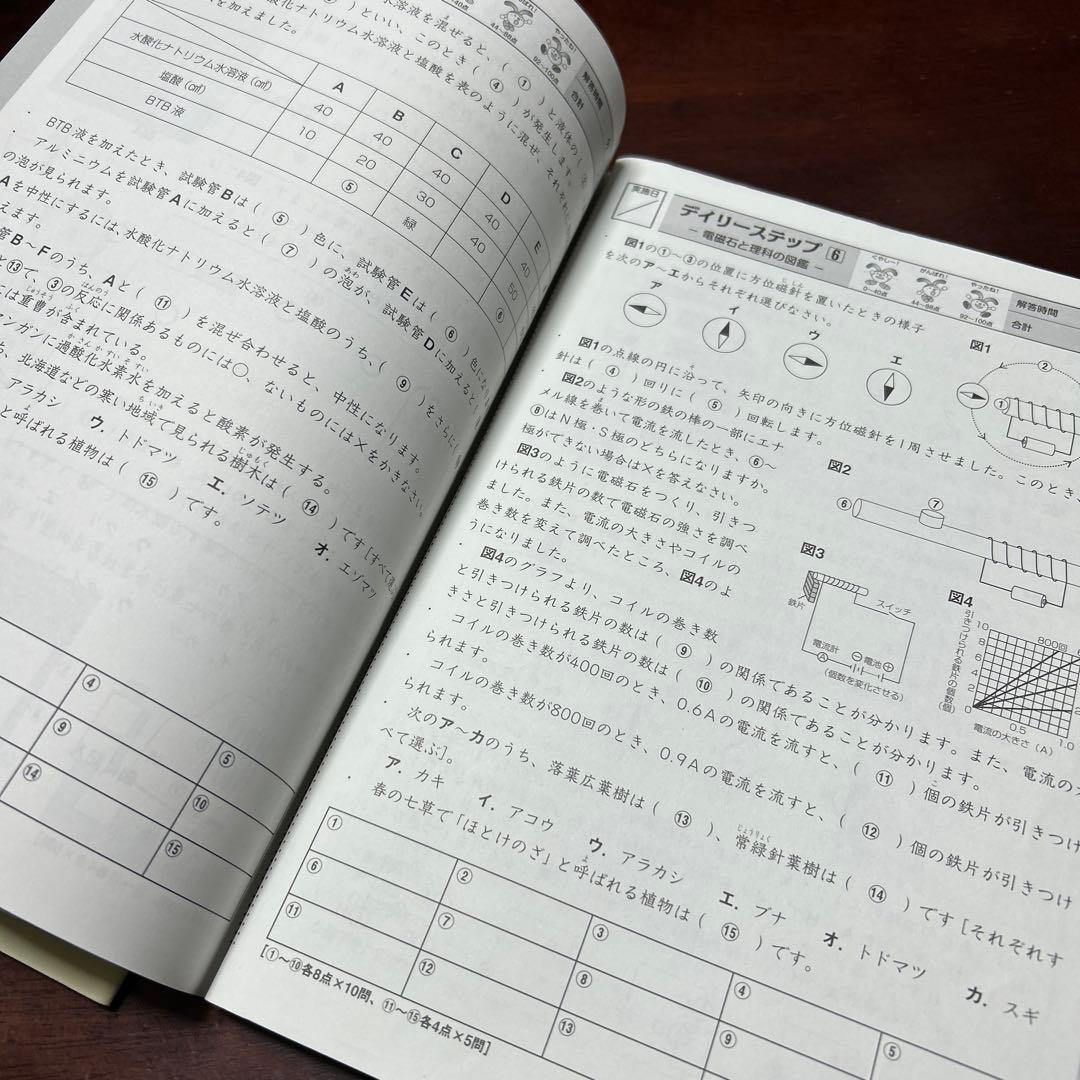 水溶液を混ぜると、( ① )と液体の( ②
)といい、このとき( ④ )が発生します。
酸化ナトリウム水溶液と塩酸を表のように混ぜ、それぞれに
を加えました。
44~88点
やったね!
92~100点
解答時間
合計
A B C D E
水酸化ナトリウム水溶液(㎤) 40 40 40 40 40
塩酸(㎤) 10 20 30 40 50
BTB液 ⑤ 緑 ⑥
BTB液を加えたとき、試験管Bは( ⑤ )色に、試験管Eは( ⑥ )色にな
アルミニウムを試験管Aに加えると( ⑦ )の泡が、試験管Dに加えると
の泡が見られます。
Aを中性にするには、水酸化ナトリウム水溶液と塩酸のうち、( ⑨ )をさらに
えます。
管B~Fのうち、Aと( ⑪ )を混ぜ合わせると、中性になります。
⑬で、③の反応に関係あるものには○、ないものには×をかきなさい。
には重曹が含まれている。
ンガンに過酸化水素水を加えると酸素が発生する。
ち、北海道などの寒い地域で見られる樹木は( ⑭ )です[すべて選
アラカシ ウ. トドマツ エ. ソテツ オ. エゾマツ
と呼ばれる植物は( ⑮ )です。
④ ⑤
⑨ ⑩
⑭ ⑮
実施日
デイリーステップ 6
- 電磁石と理科の図鑑 -
くやし~!
0~40点
がんばれ!
44~88点
やったね!
92~100点
解答時間
合計
図1の①~③の位置に方位磁針を置いたときの様子
を次のア~エからそれぞれ選びなさい。
ア イ ウ エ
図1
① ②
図1の点線の円に沿って、矢印の向きに方位磁針を1周させました。このとき
針は( ④ )回りに( ⑤ )回転します。
図2のような形の鉄の棒の一部にエナ
メル線を巻いて電流を流したとき、⑥~
⑧はN極・S極のどちらになりますか。
極ができない場合は×を答えなさい。
図2
⑥ ⑦
図3のように電磁石をつくり、引きつ
けられる鉄片の数で電磁石の強さを調べ
ました。また、電流の大きさやコイルの
巻き数を変えて調べたところ、図4のよ
うになりました。
図3
鉄片
スイッチ
電流計
A
⊖電池⊕
(個数を変化させる)
図4
引きつけられる鉄片の個数(個)
10
8
6
4
2
0
800回
0.5 1.0
電流の大きさ(A)
図4のグラフより、コイルの巻き数
と引きつけられる鉄片の数は( ⑨ )の関係であることが分かります。また、電流の大
きさと引きつけられる鉄片の数は( ⑩ )の関係であることが分かります。
コイルの巻き数が400回のとき、0.6Aの電流を流すと、( ⑪ )個の鉄片が引きつけ
られます。
コイルの巻き数が800回のとき、0.9Aの電流を流すと、( ⑫ )個の鉄片が引きつけ
られます。
次のア~カのうち、落葉広葉樹は( ⑬ )、常緑針葉樹は( ⑭ )です[それぞれす
べて選ぶ]。
ア. カキ イ. アコウ ウ. アラカシ エ. ブナ オ. トドマツ カ. スギ
春の七草で「ほとけのざ」と呼ばれる植物は( ⑮ )です。
① ② ③ ④ ⑤
⑥ ⑦ ⑧ ⑨
⑪ ⑫ ⑬
[①~⑩各8点×10問、⑪~⑮各4点×5問]